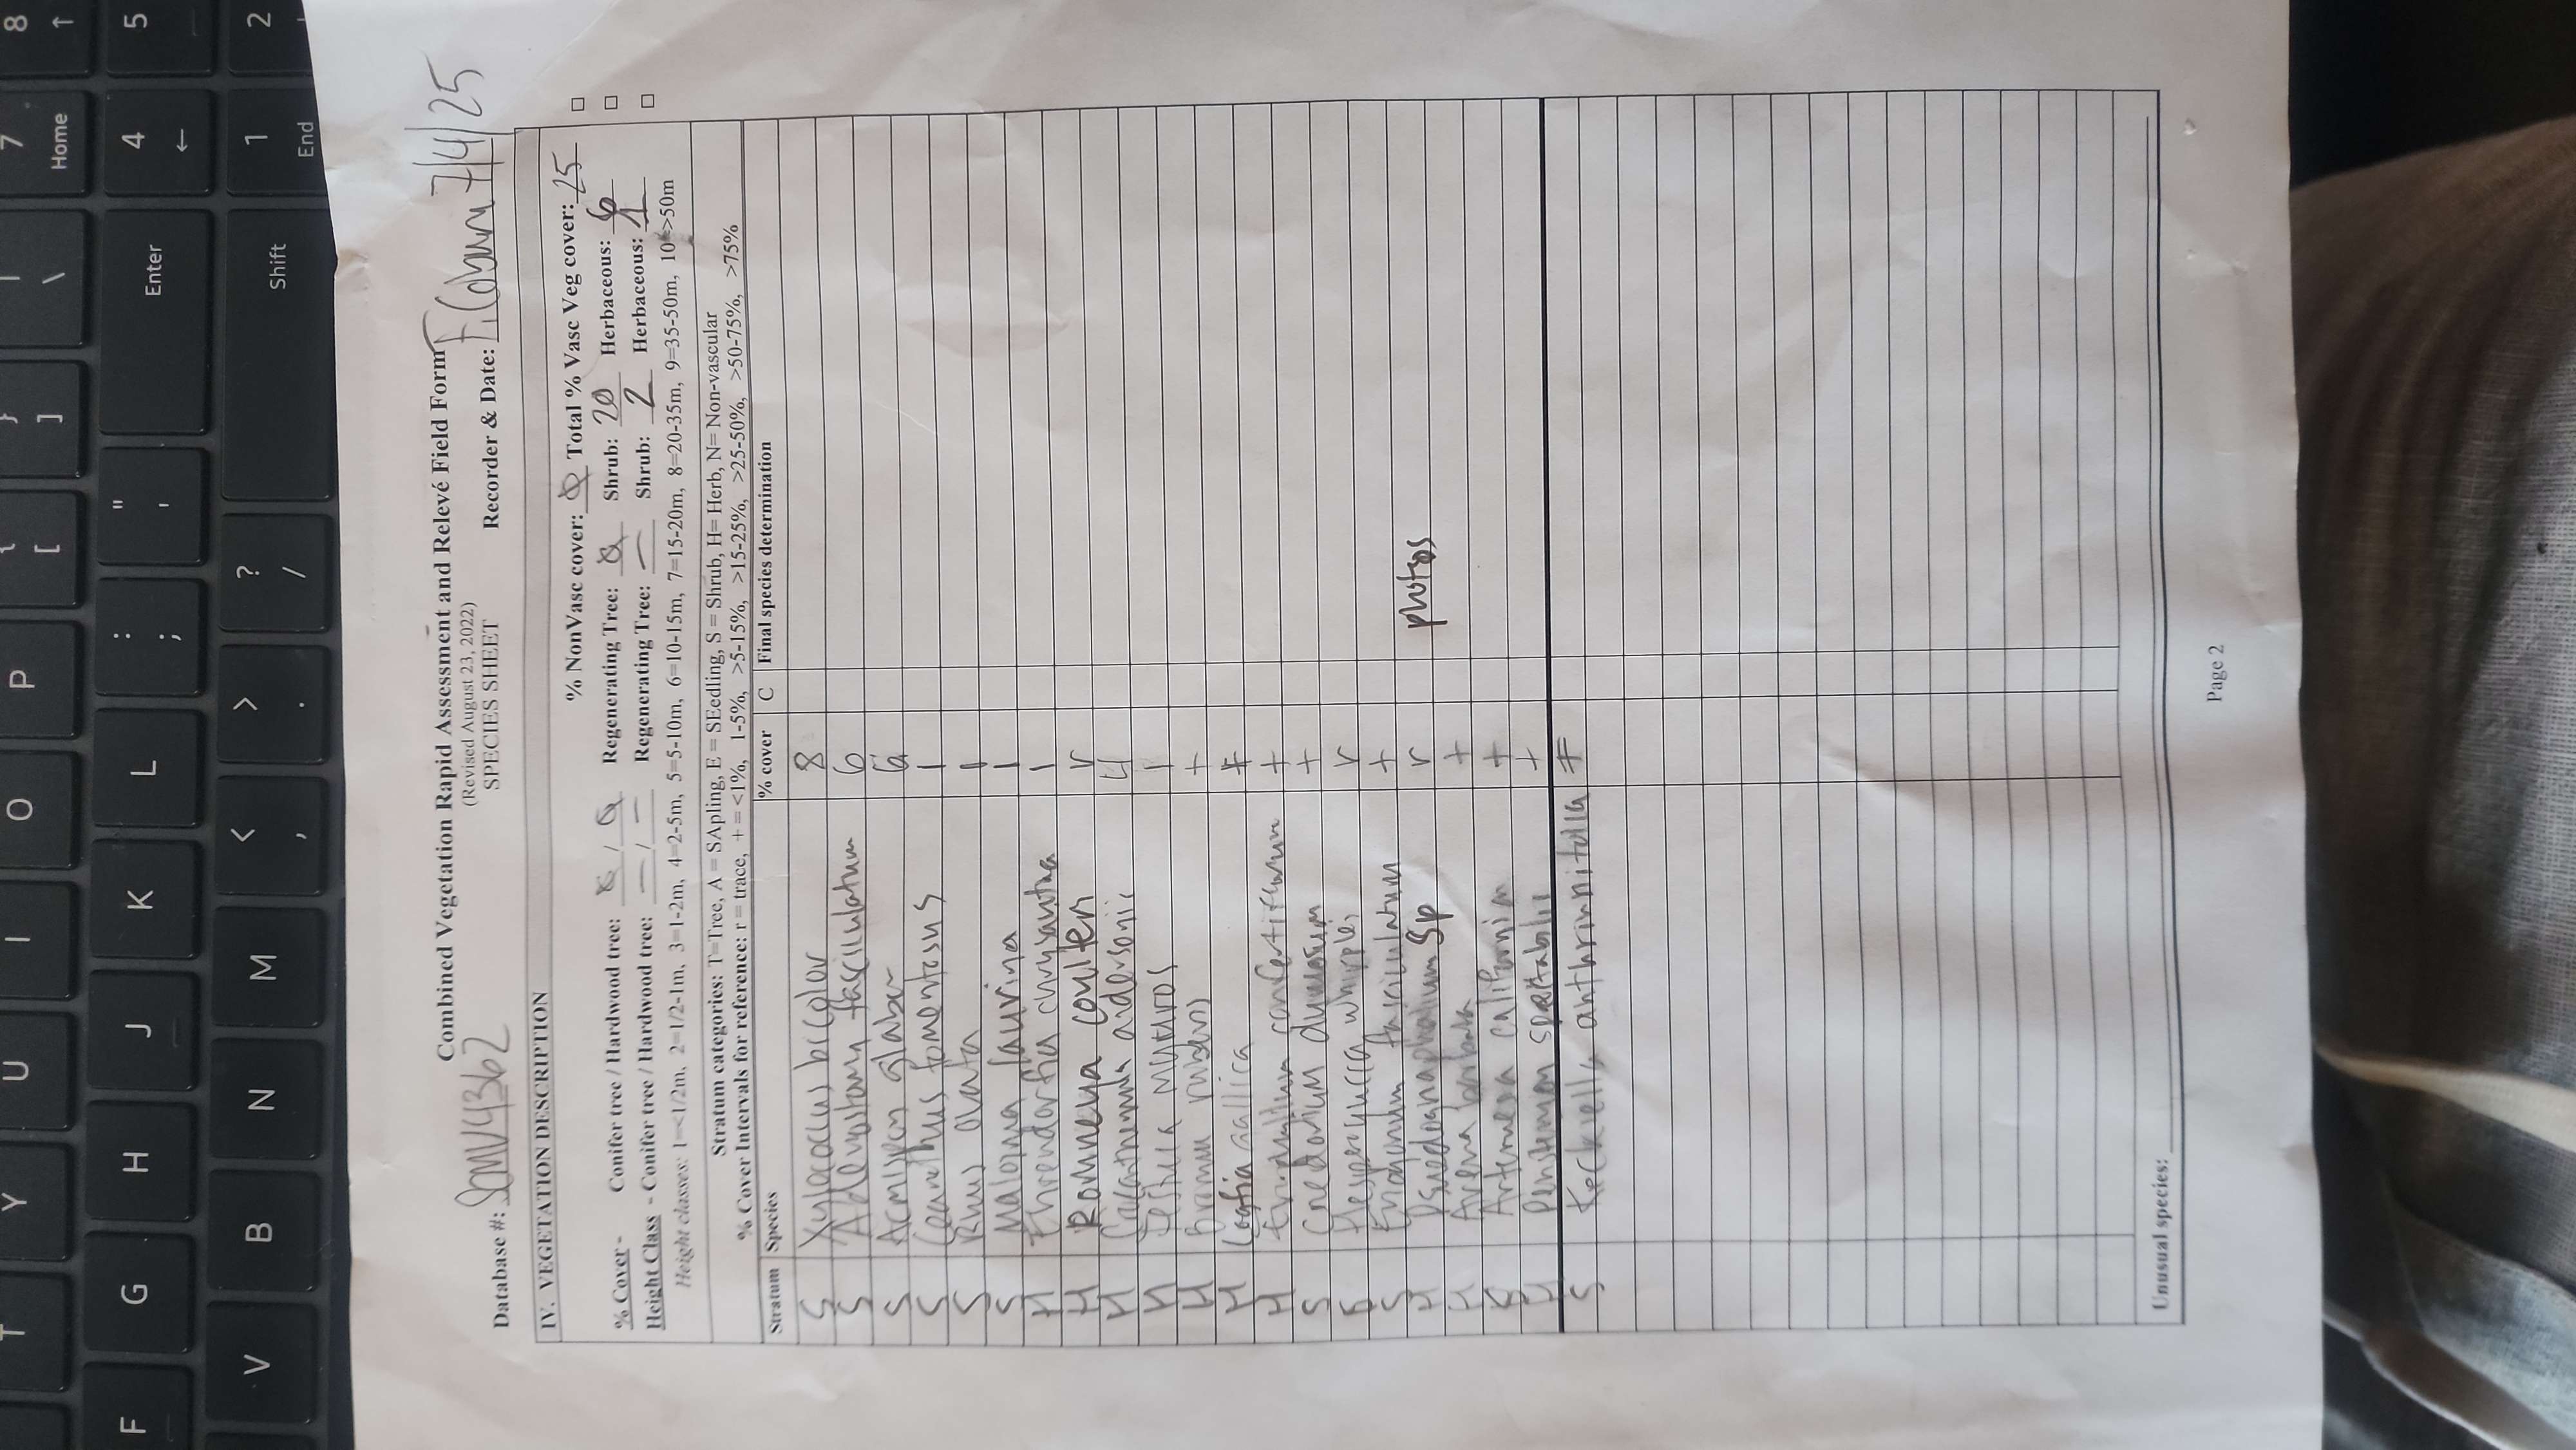 Combined Vegetation Rapid Assessment and Relevé Field Form
(Revised August 23, 2022)
SPECIES SHEET
Database #: SMV4362 Recorder & Date: F. Coburn 7/4/25
IV. VEGETATION DESCRIPTION
% NonVasc cover: 0 Total % Vasc Veg cover: 25 □
% Cover - Conifer tree / Hardwood tree: 0 / 0 Regenerating Tree: 0 Shrub: 20 Herbaceous: 6 □
Height Class - Conifer tree / Hardwood tree: – / – Regenerating Tree: – Shrub: 2 Herbaceous: 1 □
Height classes: 1=<1/2m, 2=1/2-1m, 3=1-2m, 4=2-5m, 5=5-10m, 6=10-15m, 7=15-20m, 8=20-35m, 9=35-50m, 10=>50m
Stratum categories: T=Tree, A = SApling, E = SEedling, S = Shrub, H= Herb, N= Non-vascular
% Cover Intervals for reference: r = trace, + = <1%, 1-5%, >5-15%, >15-25%, >25-50%, >50-75%, >75%
Stratum Species % cover C Final species determination
S Xylococcus bicolor 8
S Adenostoma fasciculatum 6
S Acmispon glaber
S Ceanothus tomentosus 1
S Rhus ovata 1
S Malosma laurina 1
H Ehrendorferia chrysantha 1
H Romneya coulteri r
H Calcantremula adersonii
H Festuca myuros 1
H bromus rubens +
H Logfia gallica +
H Eriophyllum confertiflorum +
S Cneoridium dumosum +
Hesperoyucca whipplei r
S Eriogonum fasciculatum +
H Pseudognaphalium Sp r photos
H Avena barbata +
S Artemesia californica +
H Penstemon spectabilis +
S Keckiella anthirrinifolia +
Unusual species:
Page 2
8
↑
5
2
7
Home
4
←
1
End
|
\
Enter
Shift
}
]
{
[
"
'
?
/
P
:
;
>
.
O
L
<
,
I
K
M
U
J
N
Y
H
B
T
G
V
F